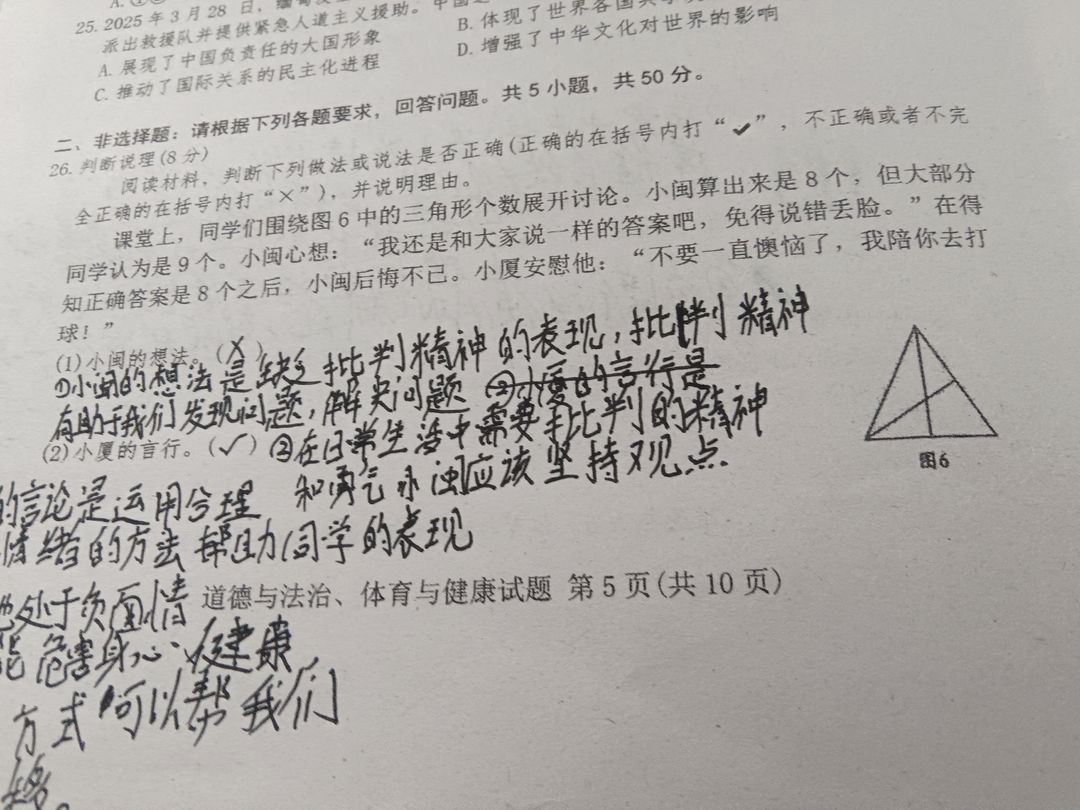 25. 2025年3月28日，缅甸发生
派出救援队并提供紧急人道主义援助。中国
A. 展现了中国负责任的大国形象
B. 体现了世界各国
C. 推动了国际关系的民主化进程
D. 增强了中华文化对世界的影响
二、非选择题：请根据下列各题要求，回答问题。共5小题，共50分。
26. 判断说理(8分)
阅读材料，判断下列做法或说法是否正确(正确的在括号内打“✓”，不正确或者不完
全正确的在括号内打“×”)，并说明理由。
课堂上，同学们围绕图6中的三角形个数展开讨论。小闽算出来是8个，但大部分
同学认为是9个。小闽心想：“我还是和大家说一样的答案吧，免得说错丢脸。”在得
知正确答案是8个之后，小闽后悔不已。小厦安慰他：“不要一直懊恼了，我陪你去打
球！”
(1)小闽的想法。(X)
①小闽的想法是缺乏批判精神的表现，批判精神
有助于我们发现问题，解决问题 ②小厦的言行是
(2)小厦的言行。(✓) ②在日常生活中需要批判的精神
和勇气 小闽应该坚持观点
的言论是运用合理
情绪的方法 帮助同学的表现
图6
处于负面情
道德与法治、体育与健康试题 第5页(共10页)
能危害身心健康
方式可以帮我们